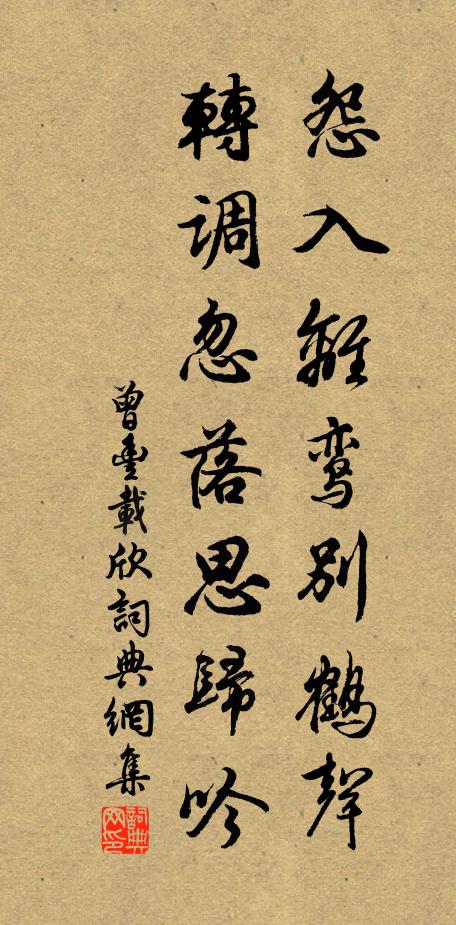 怨入離鸾別鶴聲
轉調忽落思歸吟
曾豊載欣詞典網集
詞典
网印